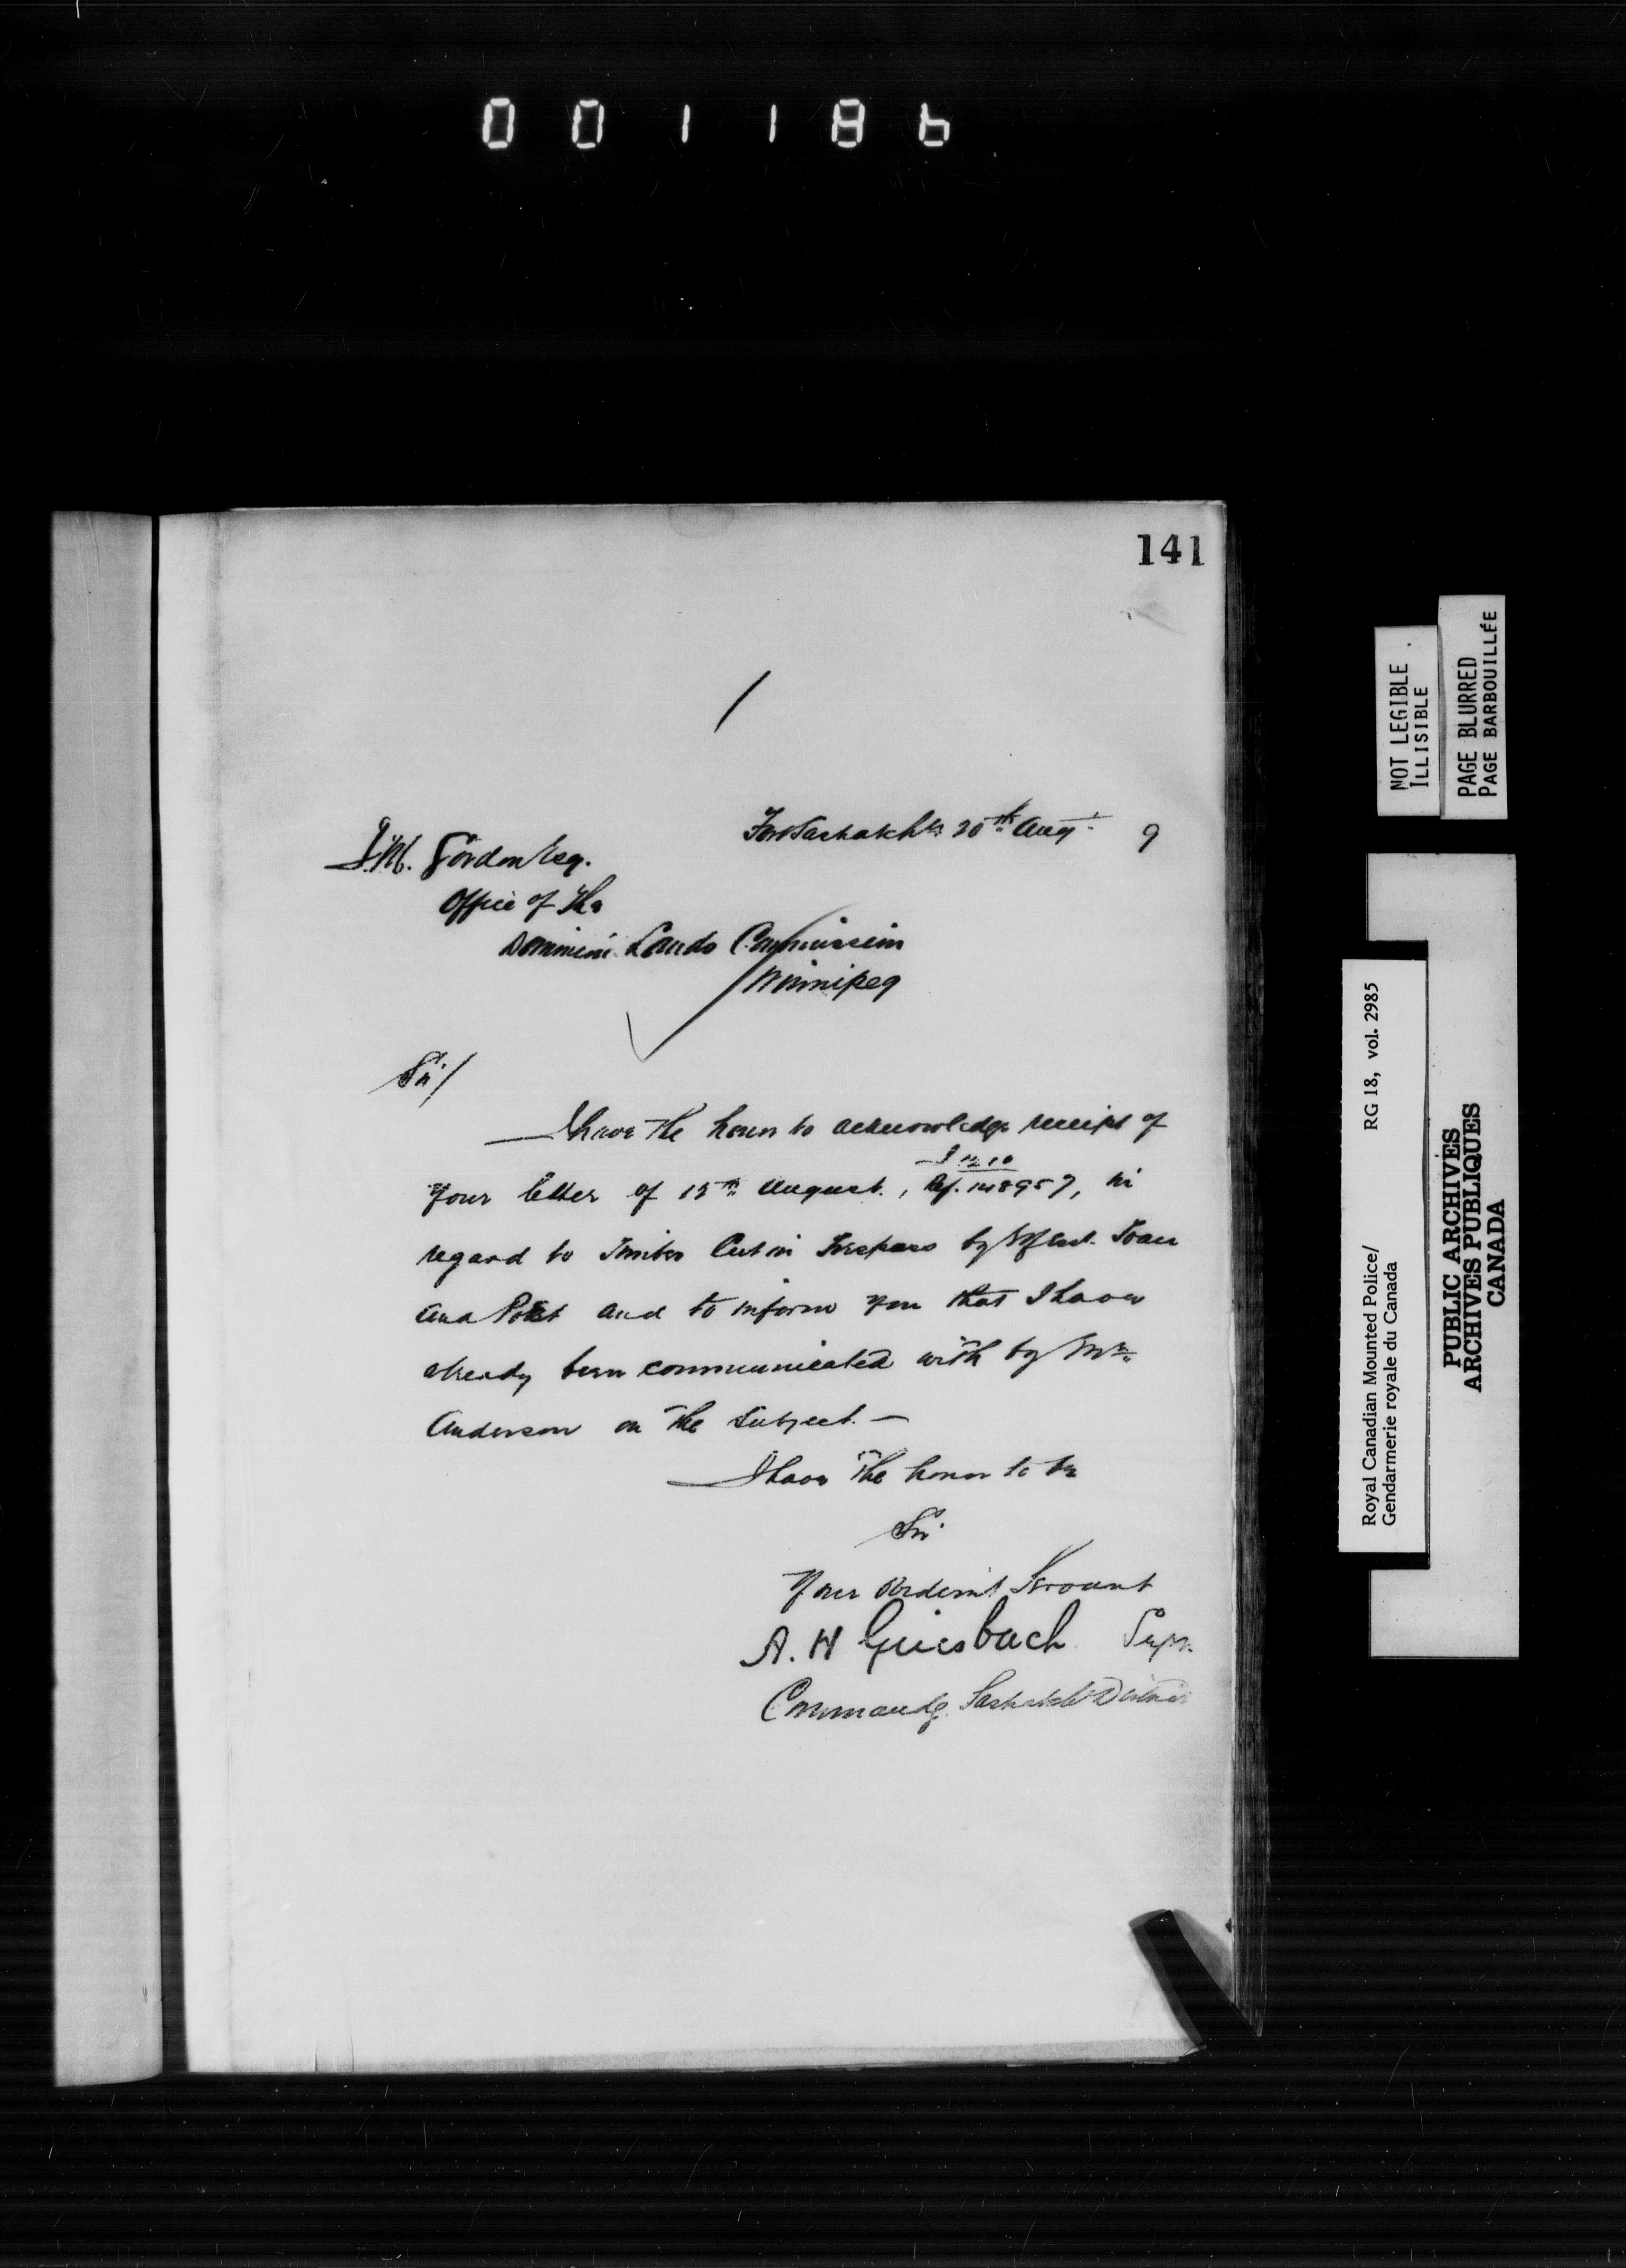 001186
141
Fort Saskatchn 20th Augt 9
J.M. Gordon Esq.
Office of The
Dominion Lands Commission
Winnipeg
Sir/
I have the honor to acknowledge receipt of
your letter of 15th August, Ref. 148957, in
regard to Timber Cut in Trespass by
and to inform you that I have
already been communicated with by Mr.
Anderson on the Subject. —
I have the honor to be
Sir
Your Obedient Servant
A. H Griesbach Supt.
Commandg. Saskatchn District
NOT LEGIBLE
ILLISIBLE
PAGE BLURRED
PAGE BARBOUILLÉE
Royal Canadian Mounted Police/ RG 18, vol. 2985
Gendarmerie royale du Canada
PUBLIC ARCHIVES
ARCHIVES PUBLIQUES
CANADA